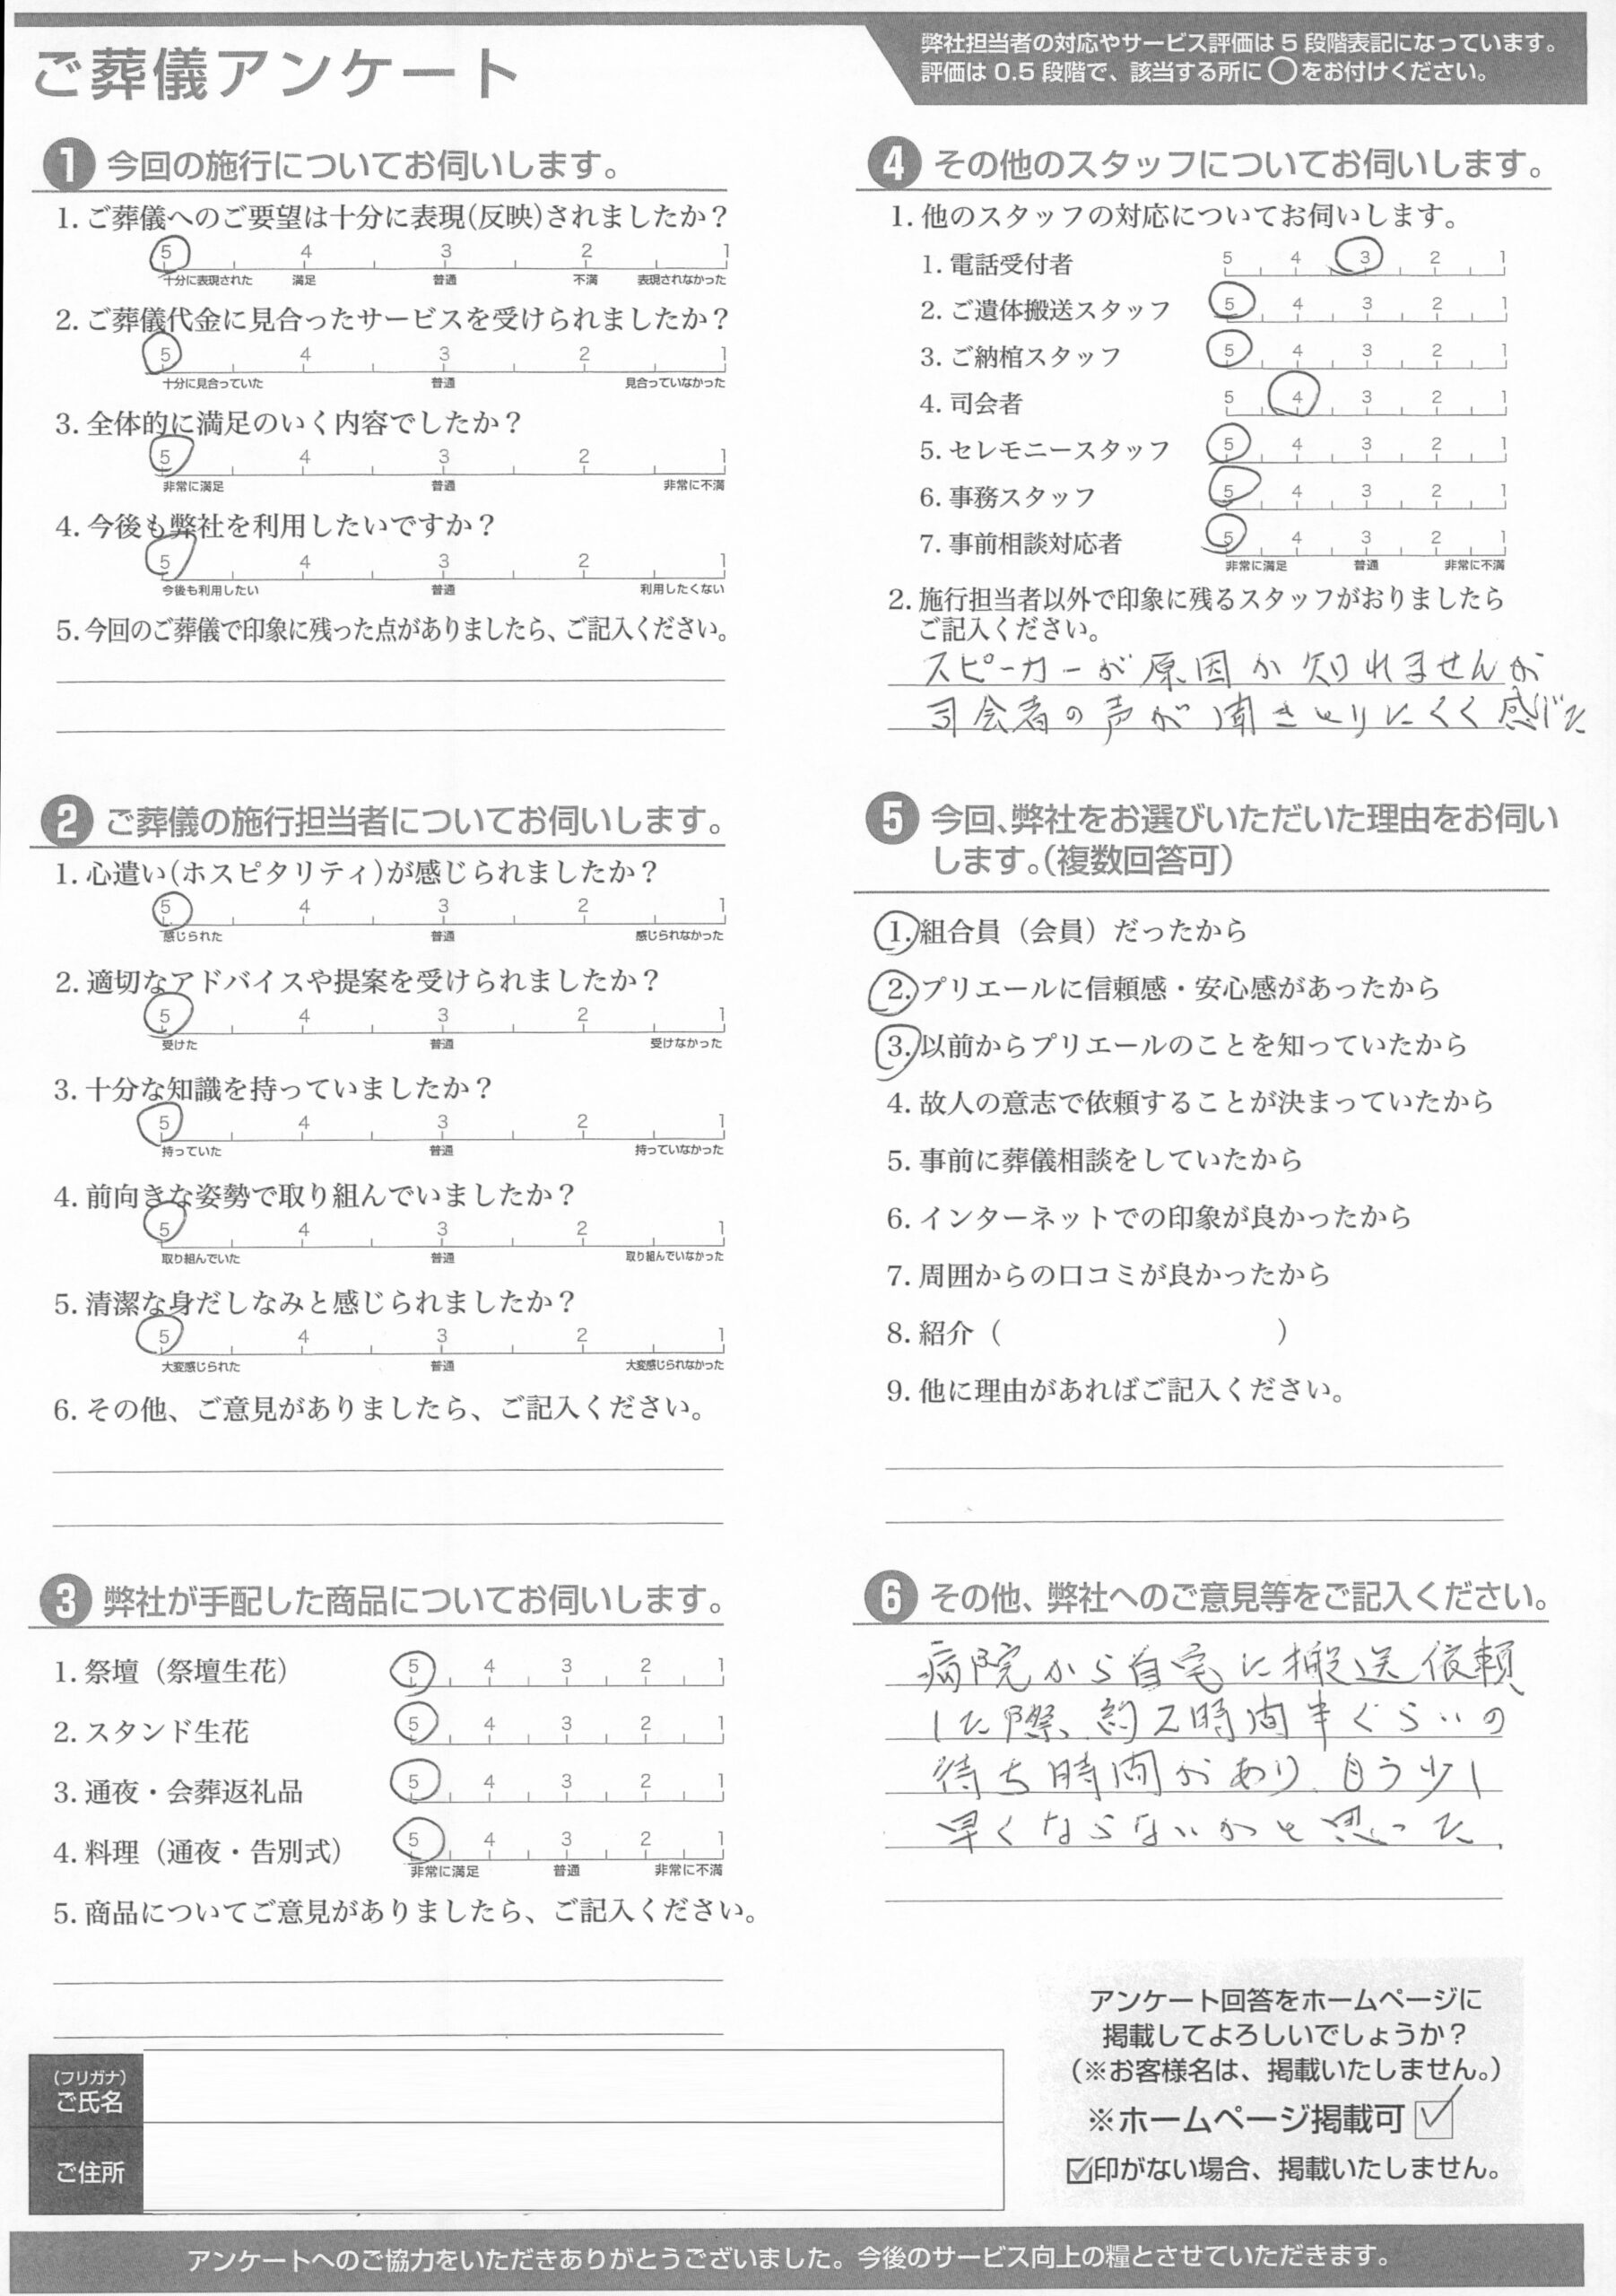 ご葬儀アンケート
弊社担当者の対応やサービス評価は 5 段階表記になっています。
評価は 0.5 段階で、該当する所に ○ をお付けください。
1 今回の施行についてお伺いします。
1. ご葬儀へのご要望は十分に表現(反映)されましたか？
5 4 3 2 1
十分に表現された 満足 普通 不満 表現されなかった
2. ご葬儀代金に見合ったサービスを受けられましたか？
5 4 3 2 1
十分に見合っていた 普通 見合っていなかった
3. 全体的に満足のいく内容でしたか？
5 4 3 2 1
非常に満足 普通 非常に不満
4. 今後も弊社を利用したいですか？
5 4 3 2 1
今後も利用したい 普通 利用したくない
5. 今回のご葬儀で印象に残った点がありましたら、ご記入ください。
2 ご葬儀の施行担当者についてお伺いします。
1. 心遣い(ホスピタリティ)が感じられましたか？
5 4 3 2 1
感じられた 普通 感じられなかった
2. 適切なアドバイスや提案を受けられましたか？
5 4 3 2 1
受けた 普通 受けなかった
3. 十分な知識を持っていましたか？
5 4 3 2 1
持っていた 普通 持っていなかった
4. 前向きな姿勢で取り組んでいましたか？
5 4 3 2 1
取り組んでいた 普通 取り組んでいなかった
5. 清潔な身だしなみと感じられましたか？
5 4 3 2 1
大変感じられた 普通 大変感じられなかった
6. その他、ご意見がありましたら、ご記入ください。
3 弊社が手配した商品についてお伺いします。
1. 祭壇（祭壇生花） 5 4 3 2 1
2. スタンド生花 5 4 3 2 1
3. 通夜・会葬返礼品 5 4 3 2 1
4. 料理（通夜・告別式） 5 4 3 2 1
非常に満足 普通 非常に不満
5. 商品についてご意見がありましたら、ご記入ください。
4 その他のスタッフについてお伺いします。
1. 他のスタッフの対応についてお伺いします。
1. 電話受付者 5 4 3 2 1
2. ご遺体搬送スタッフ 5 4 3 2 1
3. ご納棺スタッフ 5 4 3 2 1
4. 司会者 5 4 3 2 1
5. セレモニースタッフ 5 4 3 2 1
6. 事務スタッフ 5 4 3 2 1
7. 事前相談対応者 5 4 3 2 1
非常に満足 普通 非常に不満
2. 施行担当者以外で印象に残るスタッフがおりましたら
ご記入ください。
スピーカーが原因か知れませんが
司会者の声が聞きとりにくく感じた
5 今回、弊社をお選びいただいた理由をお伺い
します。（複数回答可）
1. 組合員（会員）だったから
2. プリエールに信頼感・安心感があったから
3. 以前からプリエールのことを知っていたから
4. 故人の意志で依頼することが決まっていたから
5. 事前に葬儀相談をしていたから
6. インターネットでの印象が良かったから
7. 周囲からの口コミが良かったから
8. 紹介（ ）
9. 他に理由があればご記入ください。
6 その他、弊社へのご意見等をご記入ください。
病院から自宅に搬送依頼
した際、約2時間半ぐらいの
待ち時間があり、もう少し
早くならないかと思った。
アンケート回答をホームページに
掲載してよろしいでしょうか？
（※お客様名は、掲載いたしません。）
※ホームページ掲載可 ☑
☑印がない場合、掲載いたしません。
（フリガナ）
ご氏名
ご住所
アンケートへのご協力をいただきありがとうございました。今後のサービス向上の糧とさせていただきます。